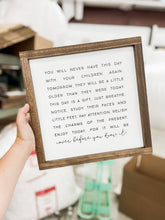 YOU WILL NEVER HAVE THIS DAY
WITH YOUR CHILDREN AGAIN
TOMORROW, THEY WILL BE A LITTLE
OLDER THAN THEY WERE TODAY.
THIS DAY IS A GIFT. JUST BREATHE,
NOTICE. STUDY THEIR FACES AND
LITTLE FEET. PAY ATTENTION. RELISH
THE CHARMS OF THE PRESENT.
ENJOY TODAY, FOR IT WILL BE
over before you know it.